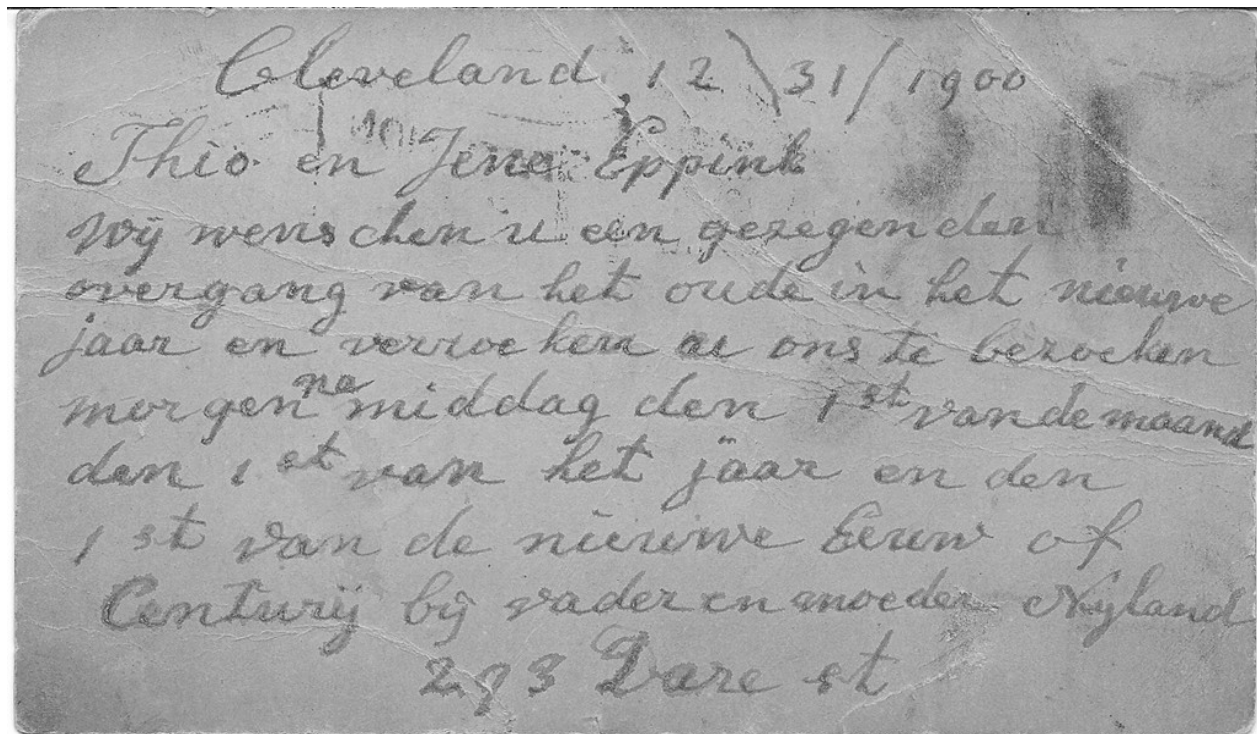 Cleveland 12\31/1900
Thio en Jena Eppink
Wij wenschen u een gezegenden
overgang van het oude in het nieuwe
jaar en verzoeken u ons te bezoeken
morgen na middag den 1st van de maand
den 1st van het jaar en den
1st van de nieuwe Eeuw of
Centurij bij vader en moeder Nyland
293 Dare st